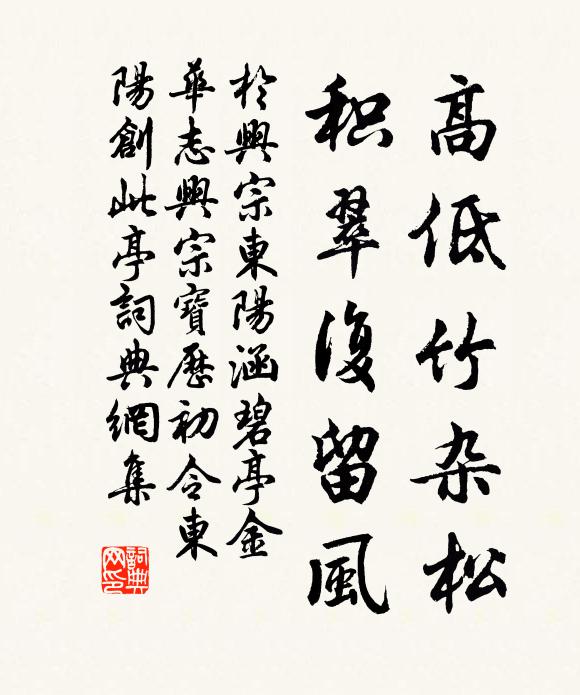 高低竹杂松
积翠復留風
於興宗東陽涵碧亭金
華志興宗寶歷初令東
陽創此亭詞典網集
詞典
网印